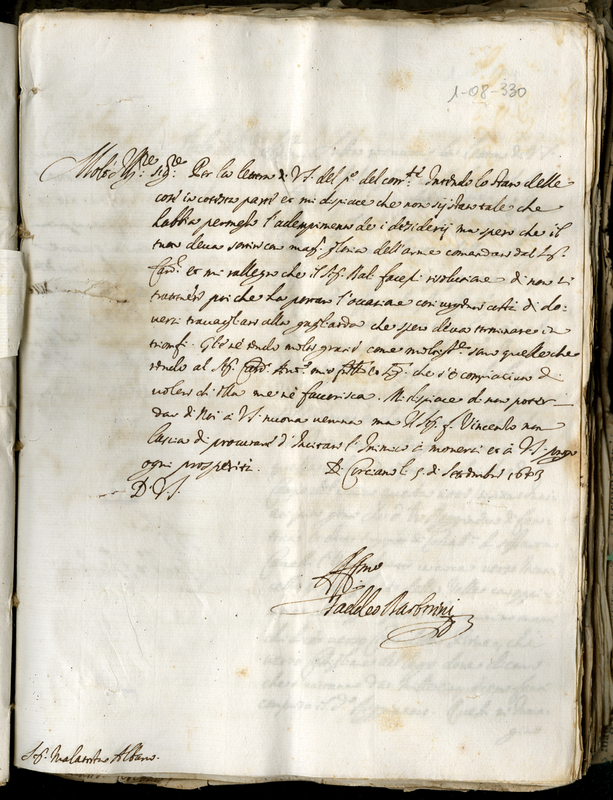 1-08-330
Molt' Ill.re Sig.re Per la lettera di V.S. del p.o del corr.te Intendo lo stato delle
cose in coteste parti et mi dispiace che non sij stato tale che
habbia permesso l'adempimento de i desiderij ma spero che il
tutto deva servire a magg.r gloria dell'arme comandate dal S.r
Card.l et mi rallegro che il S.r Bali facesse risolutione di non
trattenersi poi che ha portato l'occasione così di do-
versi travagliare alla gagliarda che spero deva terminare in
trionfi. Gle ne rendo molte gratie come sono quelle che
rendo al S.r Card. Ant.o mio che s'è compiaciuto di
voler che Ella me ne favorisca. Mi dispiace di non poter
dar di Noi à V.S. nuova veruna ma il S.r f. Vincenzo non
lascia di procurare d'Incitare l'Inimico à moversi et à V.S. prego
ogni prosperità. Di Corciano li 5. di Settembre 1643
D. V.S.
Aff.mo
Taddeo Barberini
S.r Malatesta Albani.